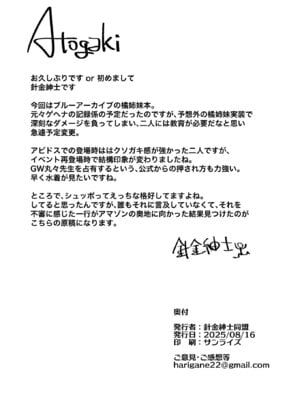 Atogaki
お久しぶりです or 初めまして
針金紳士です
今回はブルーアーカイブの橘姉妹本。
元々ゲヘナの記録係の予定だったのですが、予想外の橘姉妹実装で
深刻なダメージを負ってしまい、二人には教育が必要だなと思い
急遽予定変更。
アビドスでの登場時ははクソガキ感が強かった二人ですが、
イベント再登場時で結構印象が変わりましたね。
GW丸々先生を占有するという、公式からの押され方も力強い。
早く水着が見たいですね。
ところで、シュッポってえっちな格好してますよね。
してると思ったんですが、誰もそれに言及していなくて、それを
不審に感じた一行がアマゾンの奥地に向かった結果見つけたのが
こちらの原稿になります。
針金紳士
奥付
発行者：針金紳士同盟
発行日：2025/08/16
印　刷：サンライズ
ご意見・ご感想等
harigane22@gmail.com